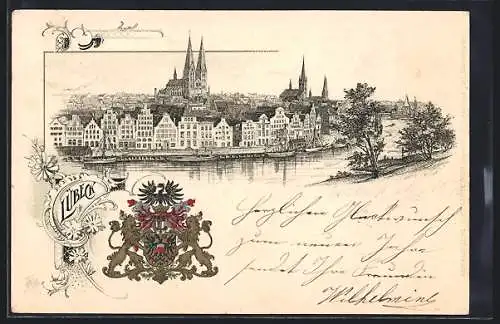 LÜBECK
Herzlichen Glückwunsch
zum neuen Jahre
sendet Ihre Freundin
Wilhelmine